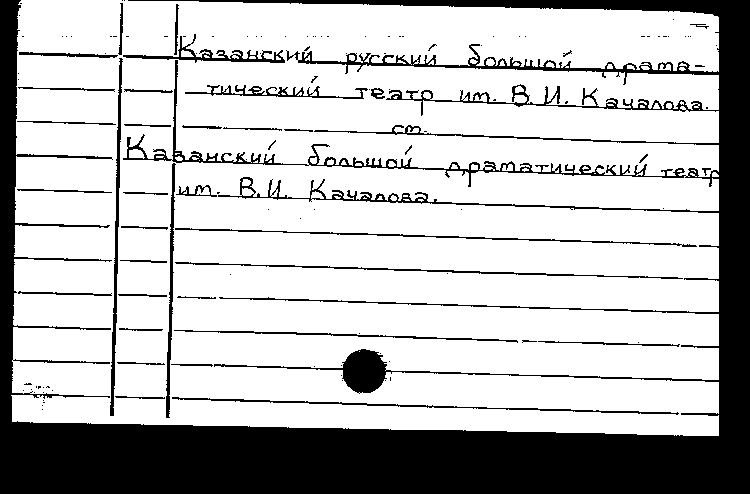 Казанский русский большой драма-
тический театр им. В.И. Качалова.
см.
Казанский большой драматический театр
им. В.И. Качалова.